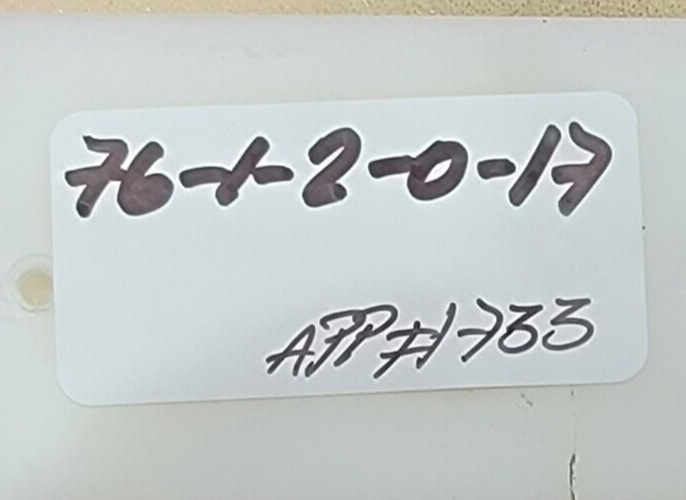 76-1-2-0-17
APP#1733